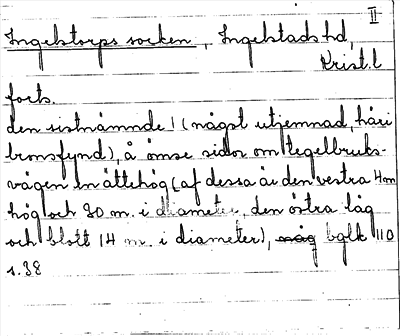 II
Ingelstorps socken, Ingelstads hd,
Krist.l
forts.
den sistnämnde! (något utjemnad, häri
bronsfynd), å ömse sidor om tegelbruks-
vägen en ättehög (af dessa är den vestra 4 m
hög och 30 m. i diameter, den östra låg
och blott 14 m. i diameter), bglk 110
s.38